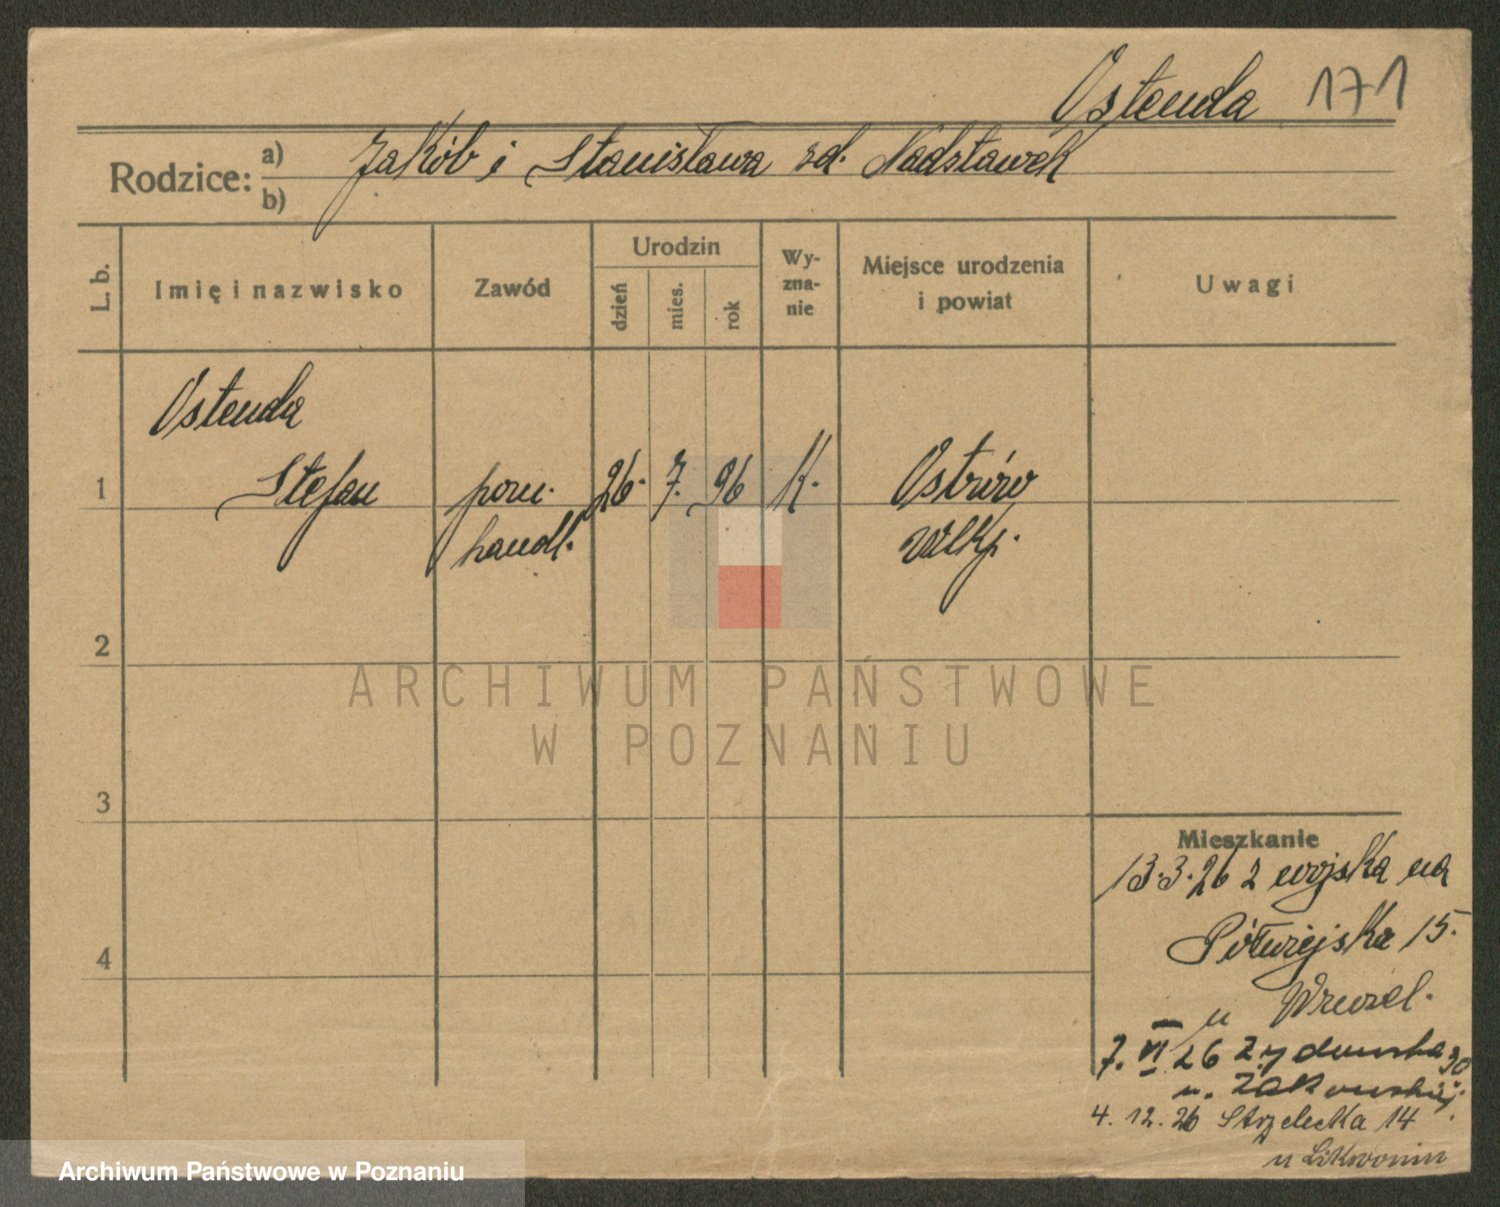 Ostenda 171
Rodzice: a) Jakób i Stanisława zd. Nadstawek
b)
L. b. Imię i nazwisko Zawód Urodzin dzień mies. rok Wy-zna-nie Miejsce urodzenia i powiat Uwagi
Ostenda
1 Stefan pom. 26. 7. 96 K. Ostrów
handl. wlkp.
2
ARCHIWUM PAŃSTWOWE
W POZNANIU
3
Mieszkanie
13.3.26 z wojska na
Półwiejska 15.
4
u
7. VI 26 Żydowska 30
u.
4. 12. 26 Strzelecka 14
u
Archiwum Państwowe w Poznaniu